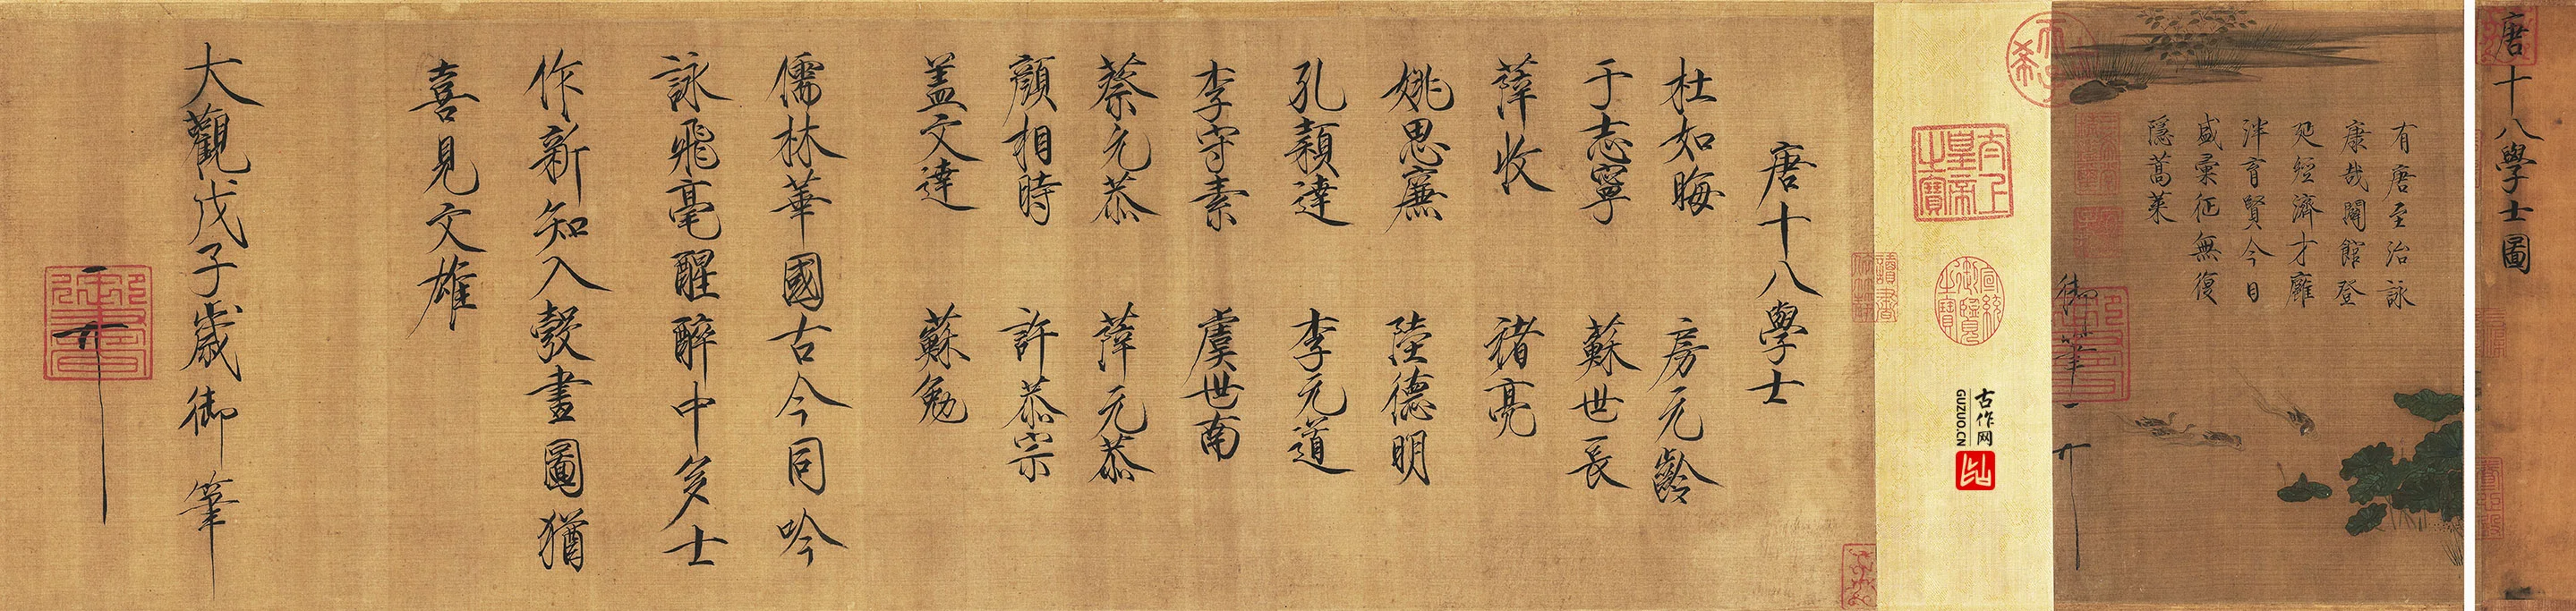 唐十八學士圖
有唐至治詠
康哉闢館登
延經濟才靡
泮育賢今日
盛彙征無復
隱蒿萊
御筆
太上皇帝之寶
宣統御覽之寶
古作网
GUZUO.CN
唐十八學士
杜如晦 房元齡
于志寧 蘇世長
薛收 褚亮
姚思廉 陸德明
孔穎達 李元道
李守素 虞世南
蔡允恭 薛元恭
顏相時 許恭宗
蓋文達 蘇勉
儒林華國古今同吟
詠飛毫醒醉中多士
作新知入彀畫圖猶
喜見文雄
大觀戊子歲御筆
御書